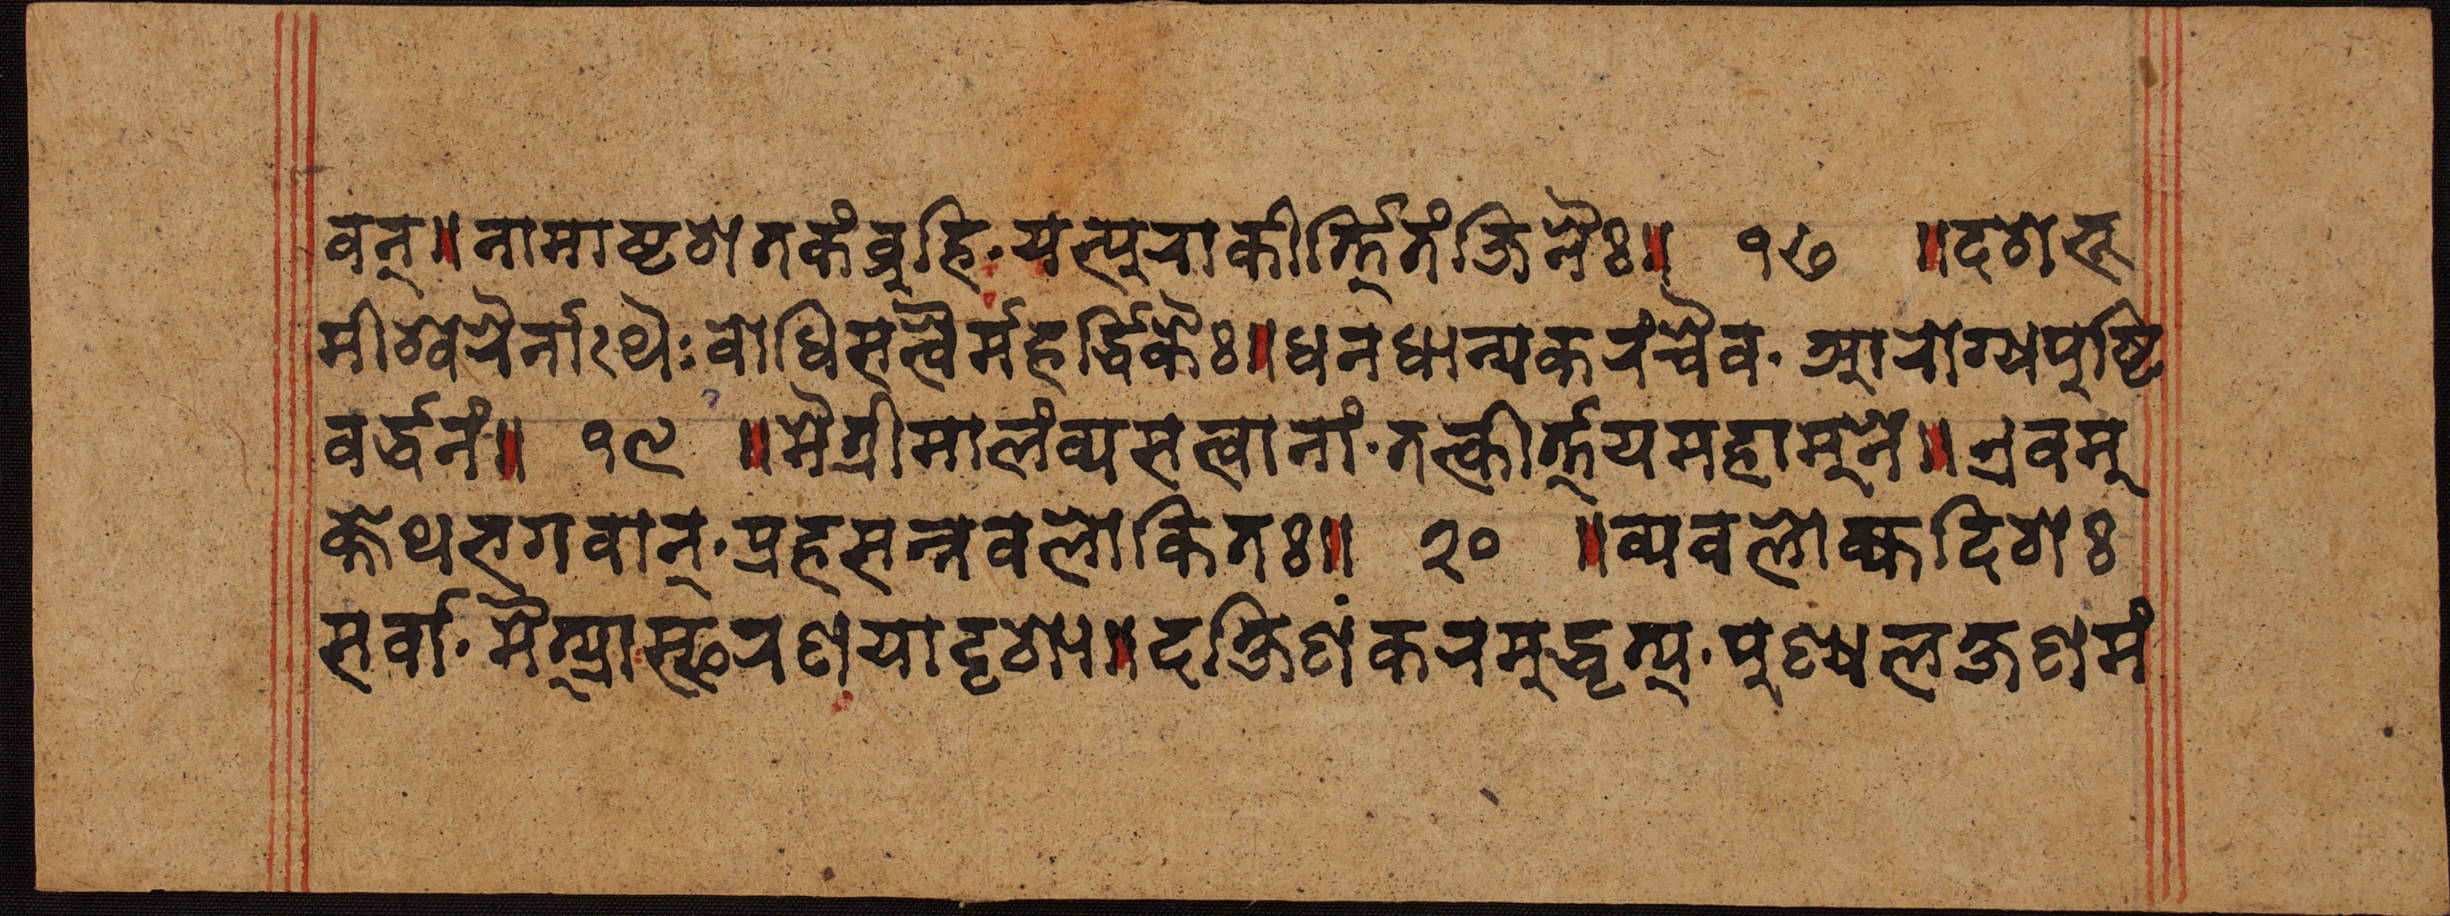 वन्॥नामाष्टशतकंब्रूहि·यत्पुराकीर्त्तितंजिनैः॥ १७ ॥दशभू
मीश्वरैर्नाःथैःबोधिसत्वैर्महर्द्धिकैः॥धनधान्यकरंचैव·आरोग्यपुष्टि
वर्द्धनं॥ १९ ॥मैत्रीमालंव्यसत्वानां·तत्कीर्त्तयमहामुने॥एवमु
क्तेथभगवान्·प्रहसन्नवलोकितः॥ २० ॥व्यवलोक्यदिशः
सर्वा·मैत्र्यास्फरणयादृशा॥दक्षिणंकरमुद्धृत्य·पुण्यलक्षणमं